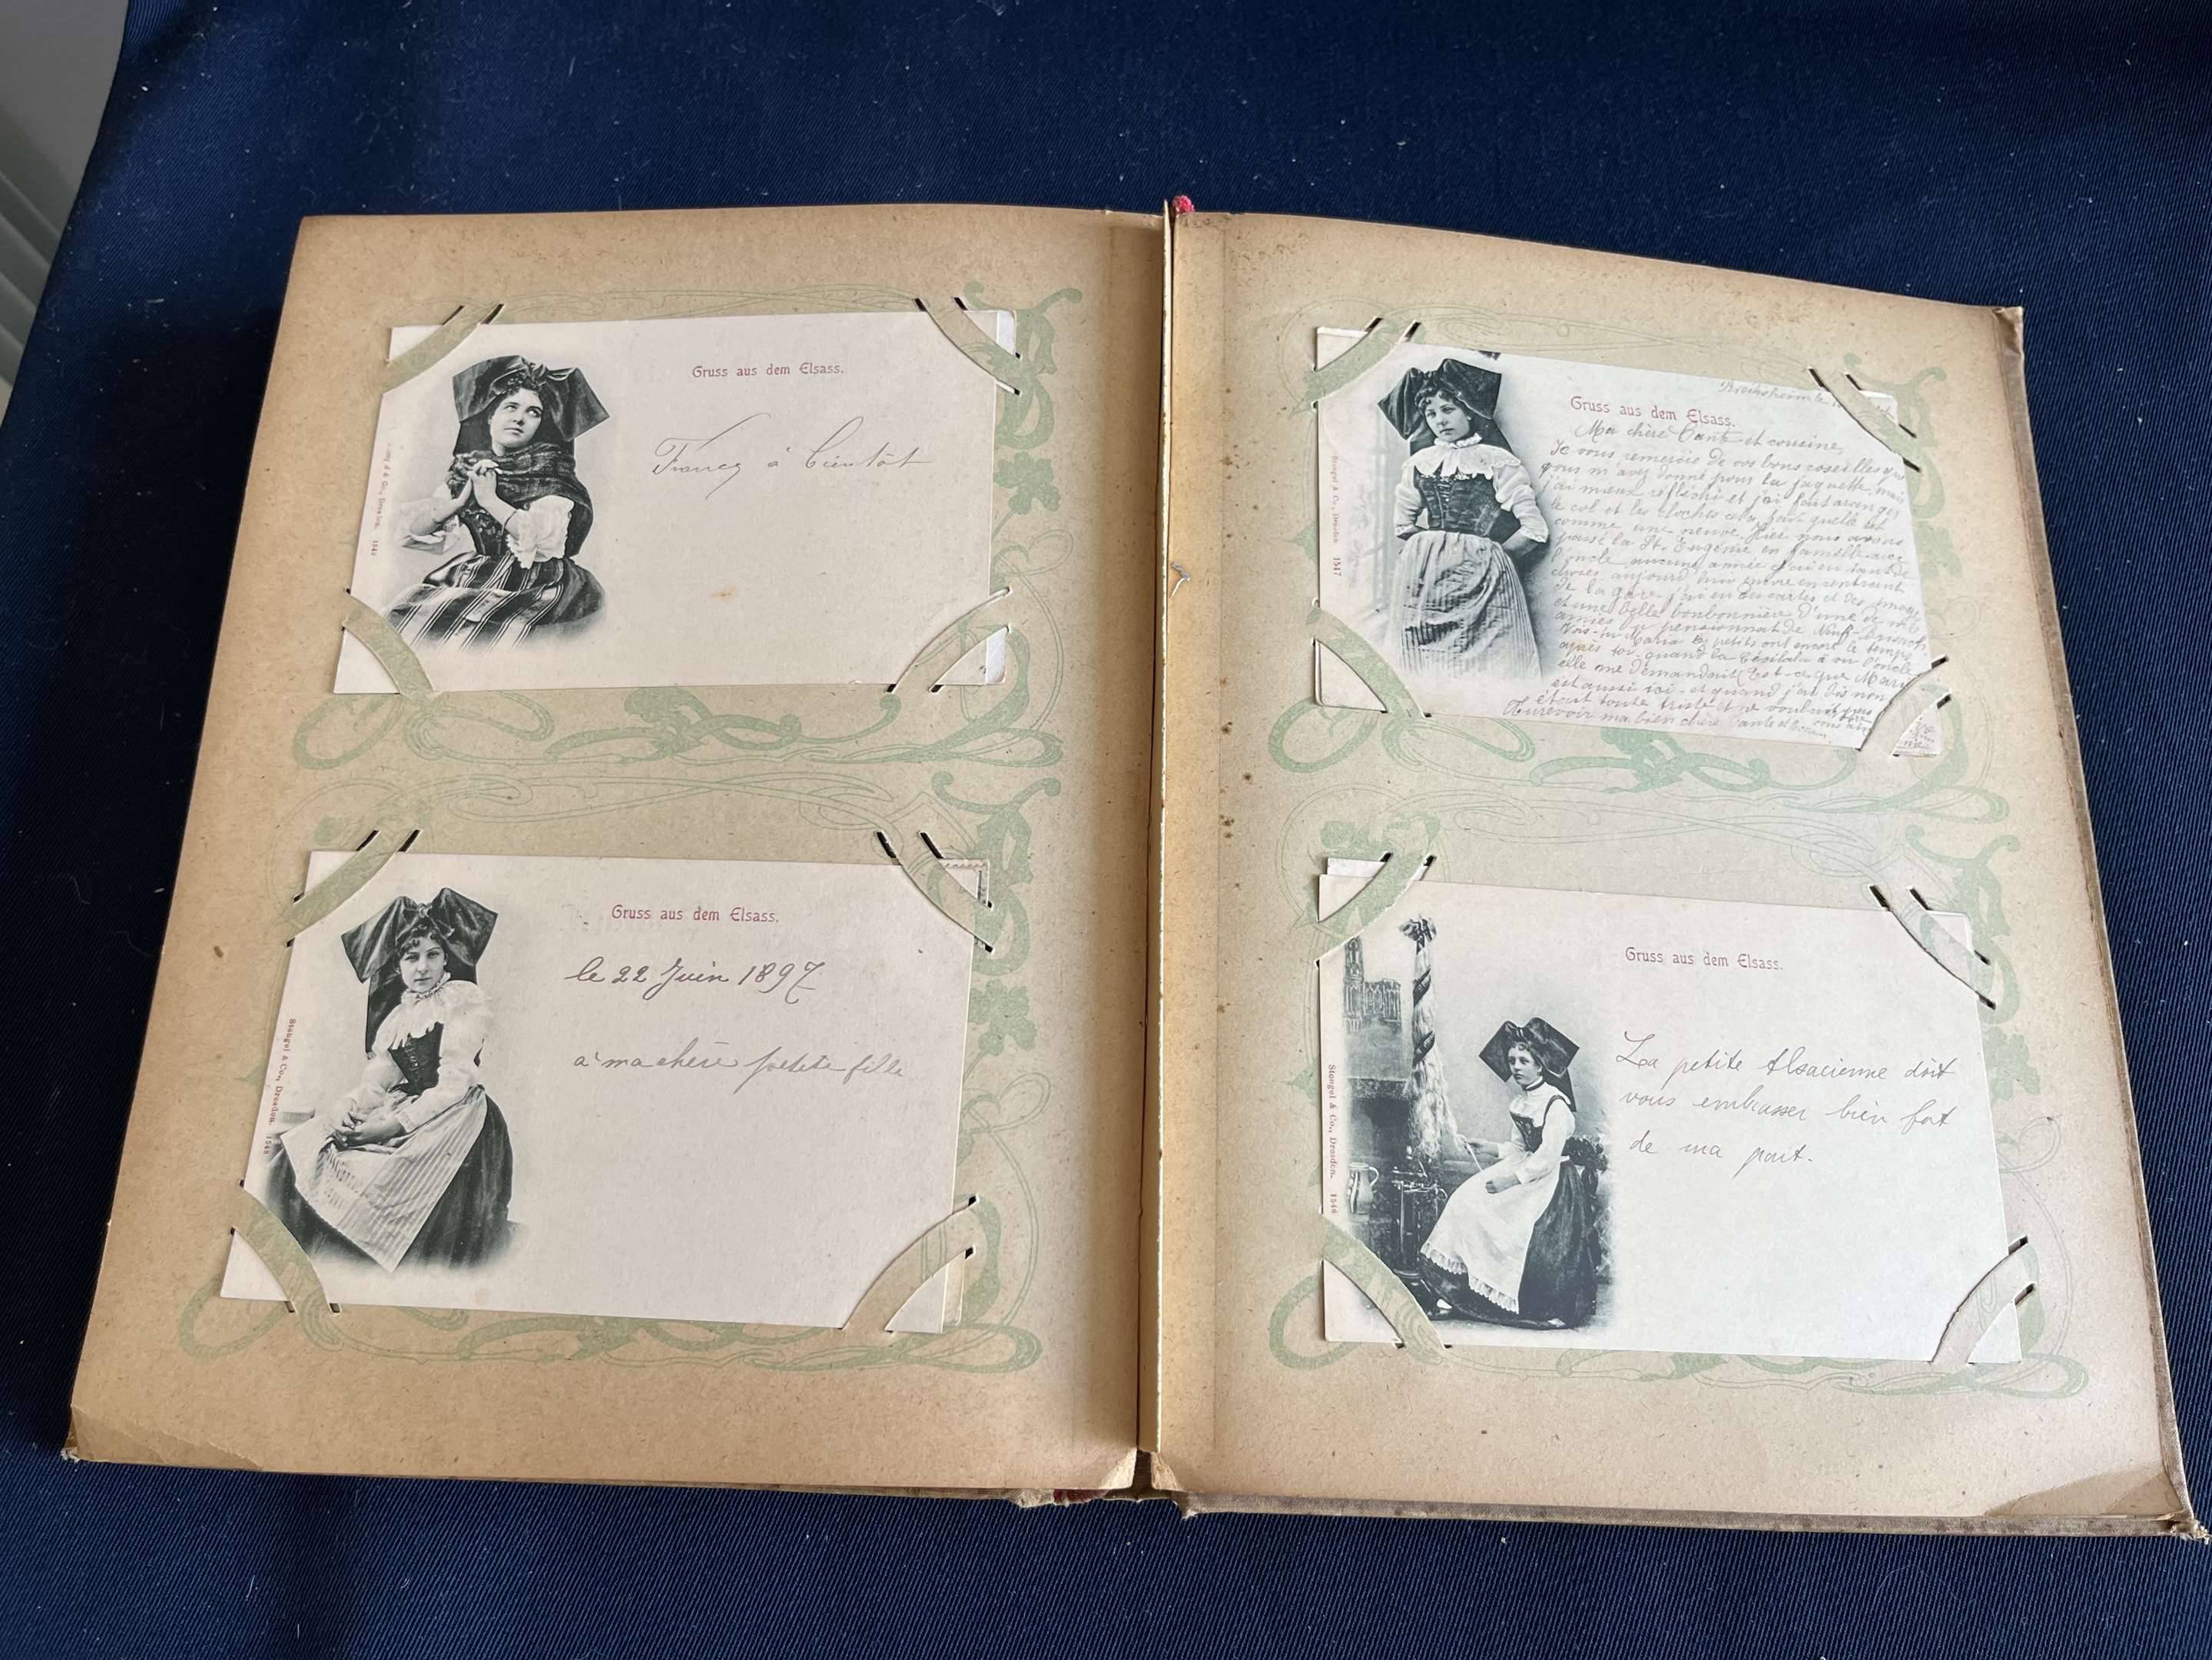 Gruss aus dem Elsass.
à bientôt
& Co., Dresden. 154
Gruss aus dem Elsass.
le 22 Juin 1897
à ma chère petite fille
Stengel & Co., Dresden. 154
Gruss aus dem Elsass.
Ma chère Tante et cousine,
Je vous remercie de vos bons
vous m'avez donné pour la jaquette, mais
j'ai mieux réfléchi et j'ai fait aranger
le col et les cloches
comme une neuve. Hier nous avons
passé la St. Eugénie en famille avec
l'oncle aucune année j'ai eu tant de
choses aujourd'hui même en rentrant
de la gare j'ai eu des cartes et des
et une belle bonbonnière d'une de mes
amies du pensionnat de
Vois-tu Maria les petits ont encore le temps
après toi quand la
elle me demandait Est-ce que Marie
est aussi ici - et quand j'ai dis non
était toute triste et ne voulait pas
Aurevoir ma bien chère Tante
Stengel & Co., Dresden. 1547
Gruss aus dem Elsass.
La petite Alsacienne doit
vous embrasser bien fort
de ma part.
Stengel & Co., Dresden. 1546